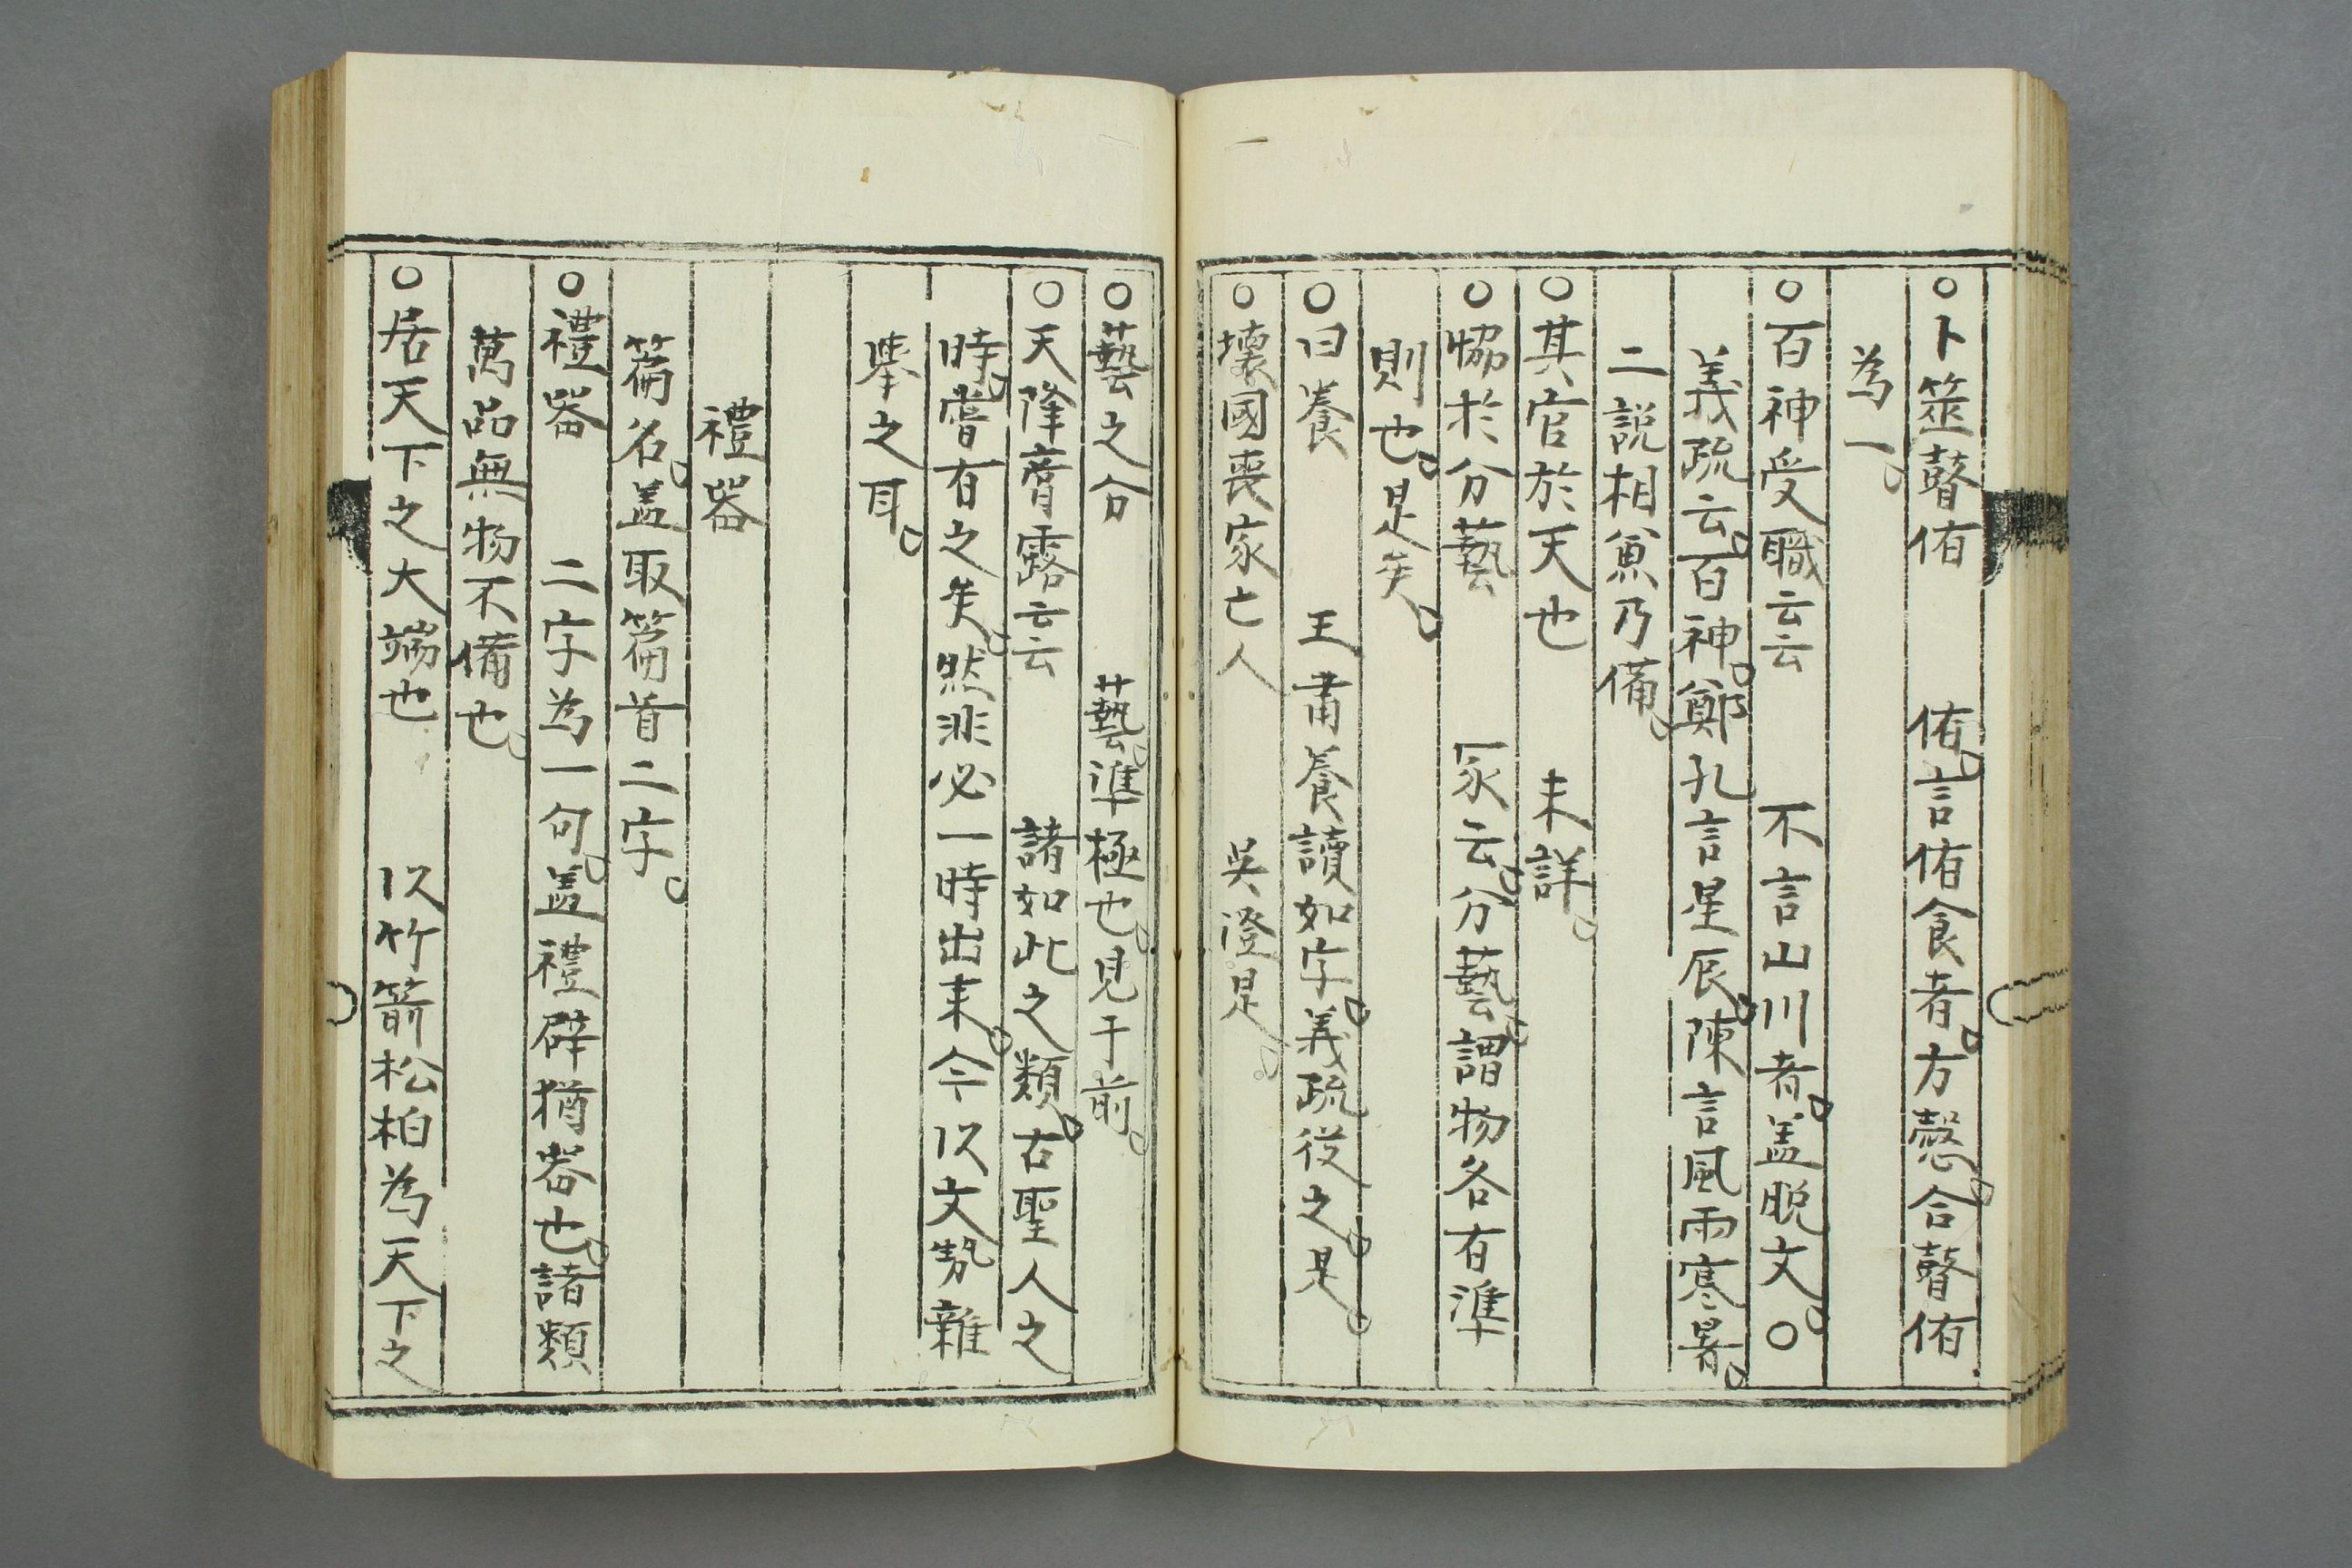 ○卜筮瞽侑　侑。言侑食者。方慤。合瞽侑
為一。
○百神受職云云　不言山川者。盖脱文。○
義疏云。百神。鄭孔言星辰。陳言風雨寒暑。
二説相兼乃備。
○其官於天也　未詳。
○協於分藝　冢云。分藝。謂物各有準
則也。是矣。
○曰養　王肅養讀如字。義疏從之。是。
○壞國喪家亡人　吳澄是。
○藝之分　藝。準極也。見于前。
○天降膏露云云　諸如此之類。古聖人之
時。嘗有之矣。然非必一時出来。今以文勢雜
舉之耳。
禮器
篇名。盖取篇首二字。
○禮器　二字為一句。盖禮辟猶器也。諸類
萬品無物不備也。
○居天下之大端也　以竹箭松柏為天下之